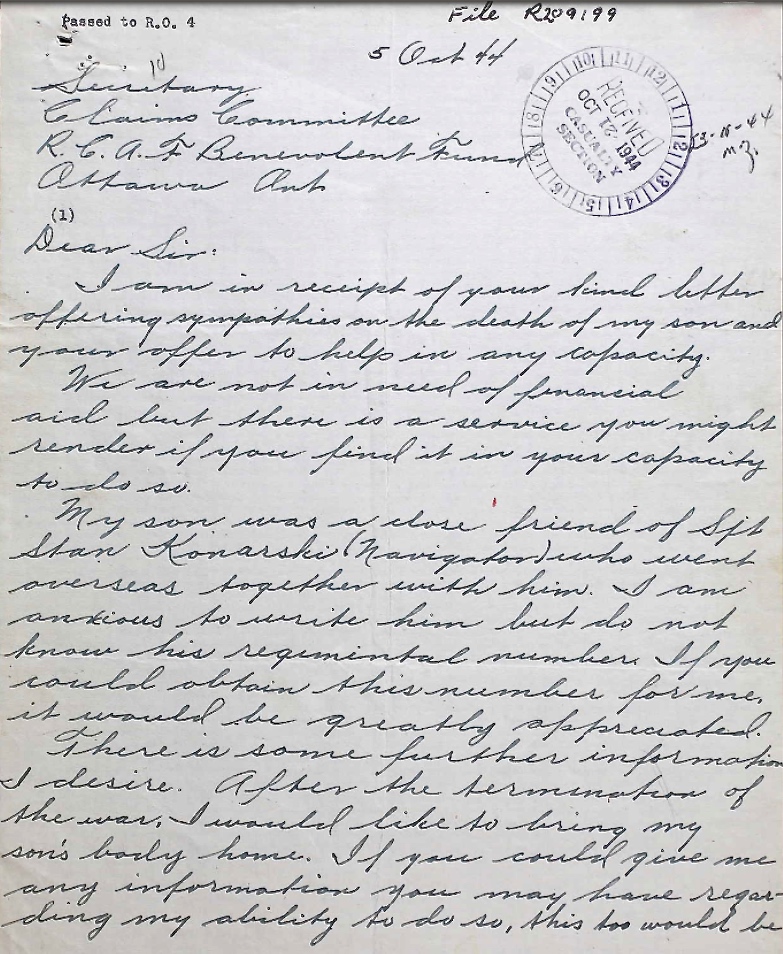 Passed to R.O. 4
File R209199
10
5 Oct 44
Secretary
Claims Committee
R.C.A.F Benevolent Fund
Ottawa Ont
RECEIVED
OCT 12 1944
CASUALTY
SECTION
13-10-44
(1)
Dear Sir:
I am in receipt of your kind letter
offering sympathies on the death of my son and
your offer to help in any capacity.
We are not in need of financial
aid but there is a service you might
render if you find it in your capacity
to do so.
My son was a close friend of Sgt
Stan Konarski (Navigator) who went
overseas together with him. I am
anxious to write him but do not
know his regimental number. If you
could obtain this number for me,
it would be greatly appreciated.
There is some further information
I desire. After the termination of
the war, I would like to bring my
son's body home. If you could give me
any information you may have regar-
ding my ability to do so, this too would be